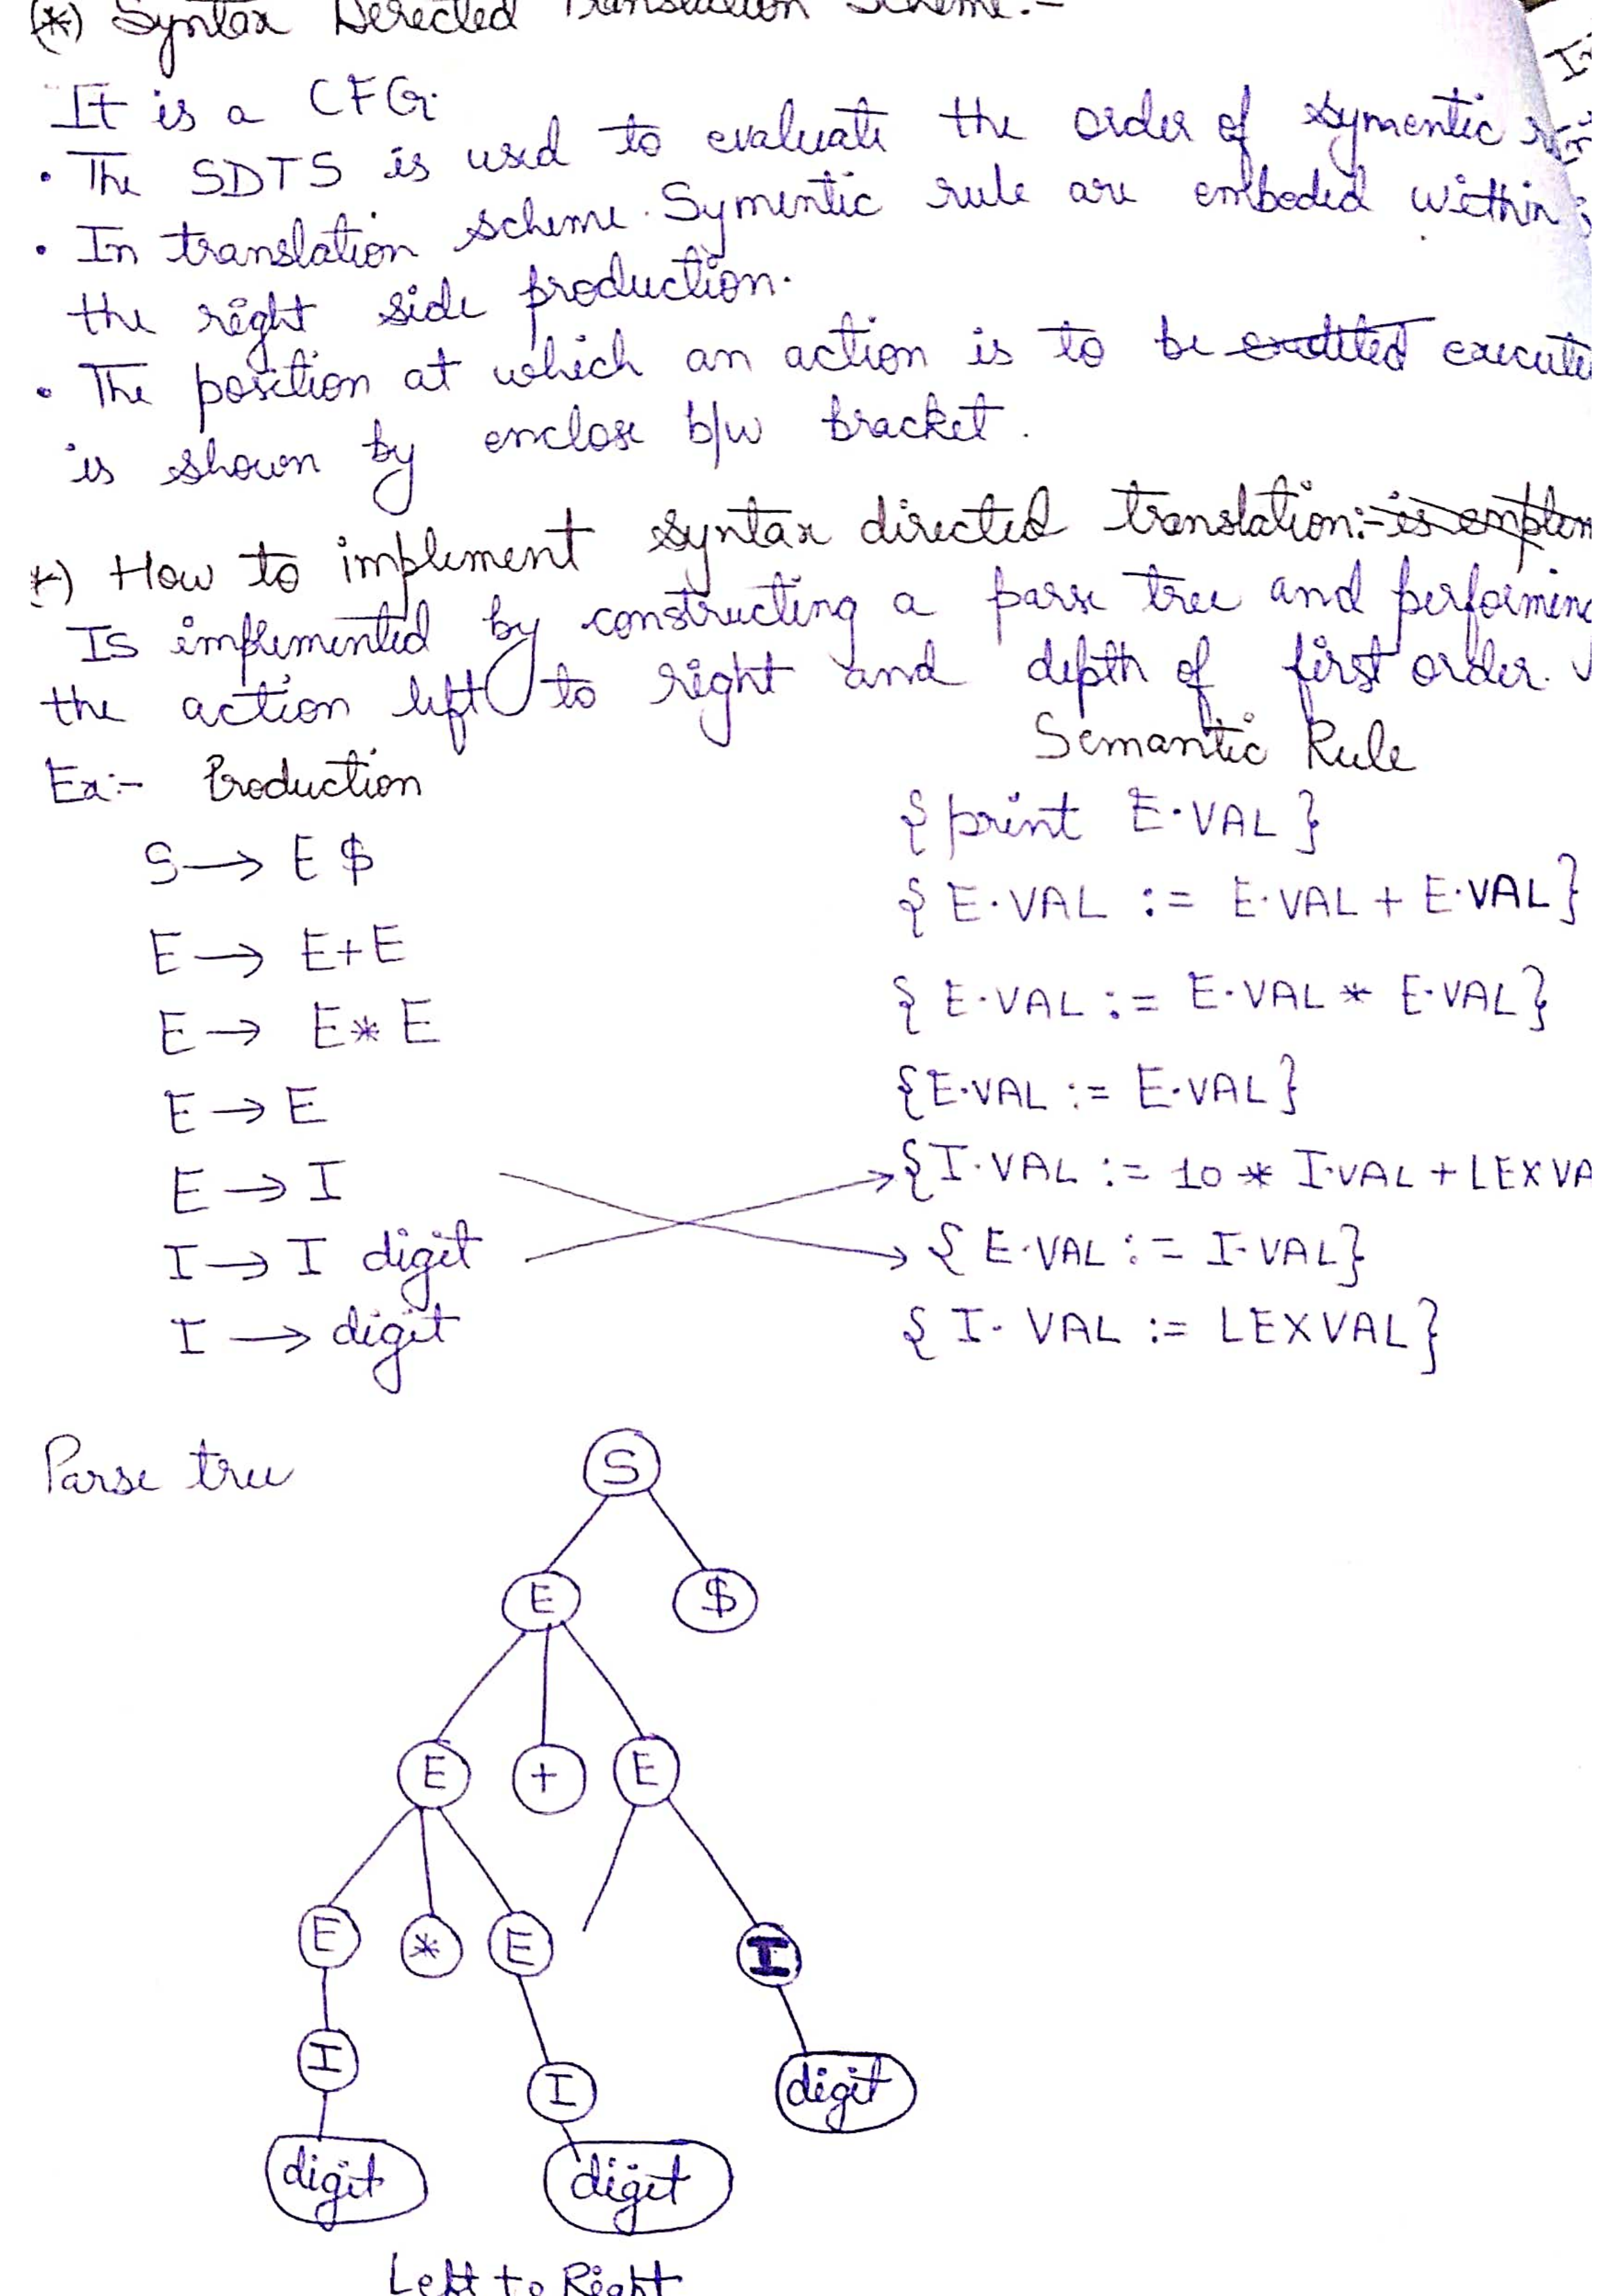 (*) Syntax Derected Translation Scheme:-
It is a CFG.
• The SDTS is used to evaluate the order of symentic
• In translation scheme. Symentic rule are emboded within
the right side production.
• The position at which an action is to be execute
is shown by enclose b/w bracket.
*) How to implement syntax directed translation:-
Is implimented by constructing a parse tree and performing
the action left to right and depth of first order.
Ex:- Production Semantic Rule
S → E $ { print E.VAL }
E → E+E { E.VAL := E.VAL + E.VAL }
E → E* E { E.VAL := E.VAL * E.VAL }
E → E { E.VAL := E.VAL }
E → I { I.VAL := 10 * I.VAL + LEXVA
I → I digit { E.VAL := I.VAL }
I → digit { I. VAL := LEXVAL }
Parse tree
S
E $
E + E
E * E I
I I digit
digit digit
Left to Right